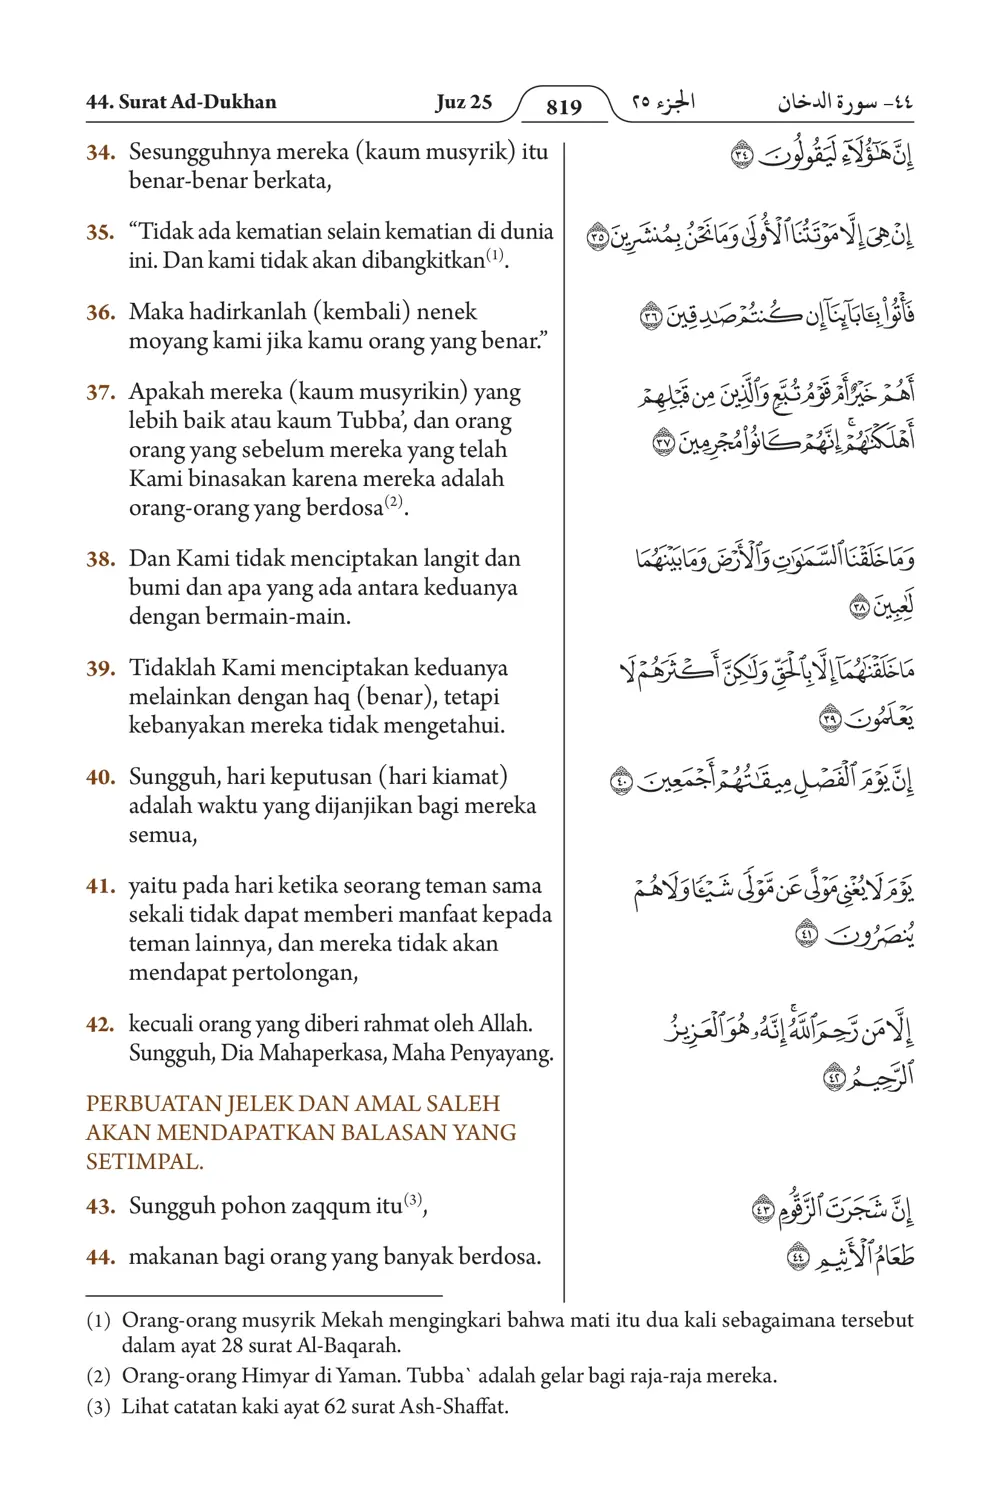 44. Surat Ad-Dukhan Juz 25 819 الجزء ٢٥ ٤٤- سورة الدخان
34. Sesungguhnya mereka (kaum musyrik) itu
benar-benar berkata,
إِنَّ هَٰٓؤُلَآءِ لَيَقُولُونَ ٣٤
35. “Tidak ada kematian selain kematian di dunia
ini. Dan kami tidak akan dibangkitkan(1).
إِنْ هِىَ إِلَّا مَوْتَتُنَا ٱلْأُولَىٰ وَمَا نَحْنُ بِمُنشَرِينَ ٣٥
36. Maka hadirkanlah (kembali) nenek
moyang kami jika kamu orang yang benar.”
فَأْتُوا۟ بِـَٔابَآئِنَآ إِن كُنتُمْ صَٰدِقِينَ ٣٦
37. Apakah mereka (kaum musyrikin) yang
lebih baik atau kaum Tubba’, dan orang
orang yang sebelum mereka yang telah
Kami binasakan karena mereka adalah
orang-orang yang berdosa(2).
أَهُمْ خَيْرٌ أَمْ قَوْمُ تُبَّعٍ وَٱلَّذِينَ مِن قَبْلِهِمْ
أَهْلَكْنَٰهُمْ ۚ إِنَّهُمْ كَانُوا۟ مُجْرِمِينَ ٣٧
38. Dan Kami tidak menciptakan langit dan
bumi dan apa yang ada antara keduanya
dengan bermain-main.
وَمَا خَلَقْنَا ٱلسَّمَٰوَٰتِ وَٱلْأَرْضَ وَمَا بَيْنَهُمَا
لَٰعِبِينَ ٣٨
39. Tidaklah Kami menciptakan keduanya
melainkan dengan haq (benar), tetapi
kebanyakan mereka tidak mengetahui.
مَا خَلَقْنَٰهُمَآ إِلَّا بِٱلْحَقِّ وَلَٰكِنَّ أَكْثَرَهُمْ لَا
يَعْلَمُونَ ٣٩
40. Sungguh, hari keputusan (hari kiamat)
adalah waktu yang dijanjikan bagi mereka
semua,
إِنَّ يَوْمَ ٱلْفَصْلِ مِيقَٰتُهُمْ أَجْمَعِينَ ٤٠
41. yaitu pada hari ketika seorang teman sama
sekali tidak dapat memberi manfaat kepada
teman lainnya, dan mereka tidak akan
mendapat pertolongan,
يَوْمَ لَا يُغْنِى مَوْلًى عَن مَّوْلًى شَيْـًٔا وَلَا هُمْ
يُنصَرُونَ ٤١
42. kecuali orang yang diberi rahmat oleh Allah.
Sungguh, Dia Mahaperkasa, Maha Penyayang.
إِلَّا مَن رَّحِمَ ٱللَّهُ ۚ إِنَّهُۥ هُوَ ٱلْعَزِيزُ
ٱلرَّحِيمُ ٤٢
PERBUATAN JELEK DAN AMAL SALEH
AKAN MENDAPATKAN BALASAN YANG
SETIMPAL.
43. Sungguh pohon zaqqum itu(3),
إِنَّ شَجَرَتَ ٱلزَّقُّومِ ٤٣
44. makanan bagi orang yang banyak berdosa.
طَعَامُ ٱلْأَثِيمِ ٤٤
(1) Orang-orang musyrik Mekah mengingkari bahwa mati itu dua kali sebagaimana tersebut
dalam ayat 28 surat Al-Baqarah.
(2) Orang-orang Himyar di Yaman. Tubba` adalah gelar bagi raja-raja mereka.
(3) Lihat catatan kaki ayat 62 surat Ash-Shaffat.